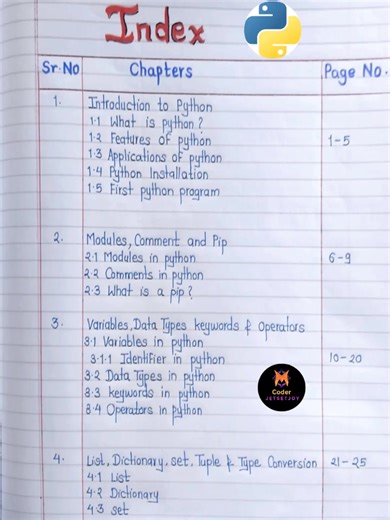 Index
Sr. No Chapters Page No.
1. Introduction to Python
1.1 What is python?
1.2 Features of python 1-5
1.3 Applications of python
1.4 Python Installation
1.5 First python program
2. Modules, Comment and Pip
2.1 Modules in python 6-9
2.2 Comments in python
2.3 What is a pip?
3. Variables, Data Types keywords & Operators
3.1 Variables in python
3.1.1 Identifier in python 10-20
3.2 Data Types in python
3.3 keywords in python
3.4 Operators in python
Coder
JETSETJOY
4. List, Dictionary, set, Tuple & Type Conversion 21-25
4.1 List
4.2 Dictionary
4.3 set